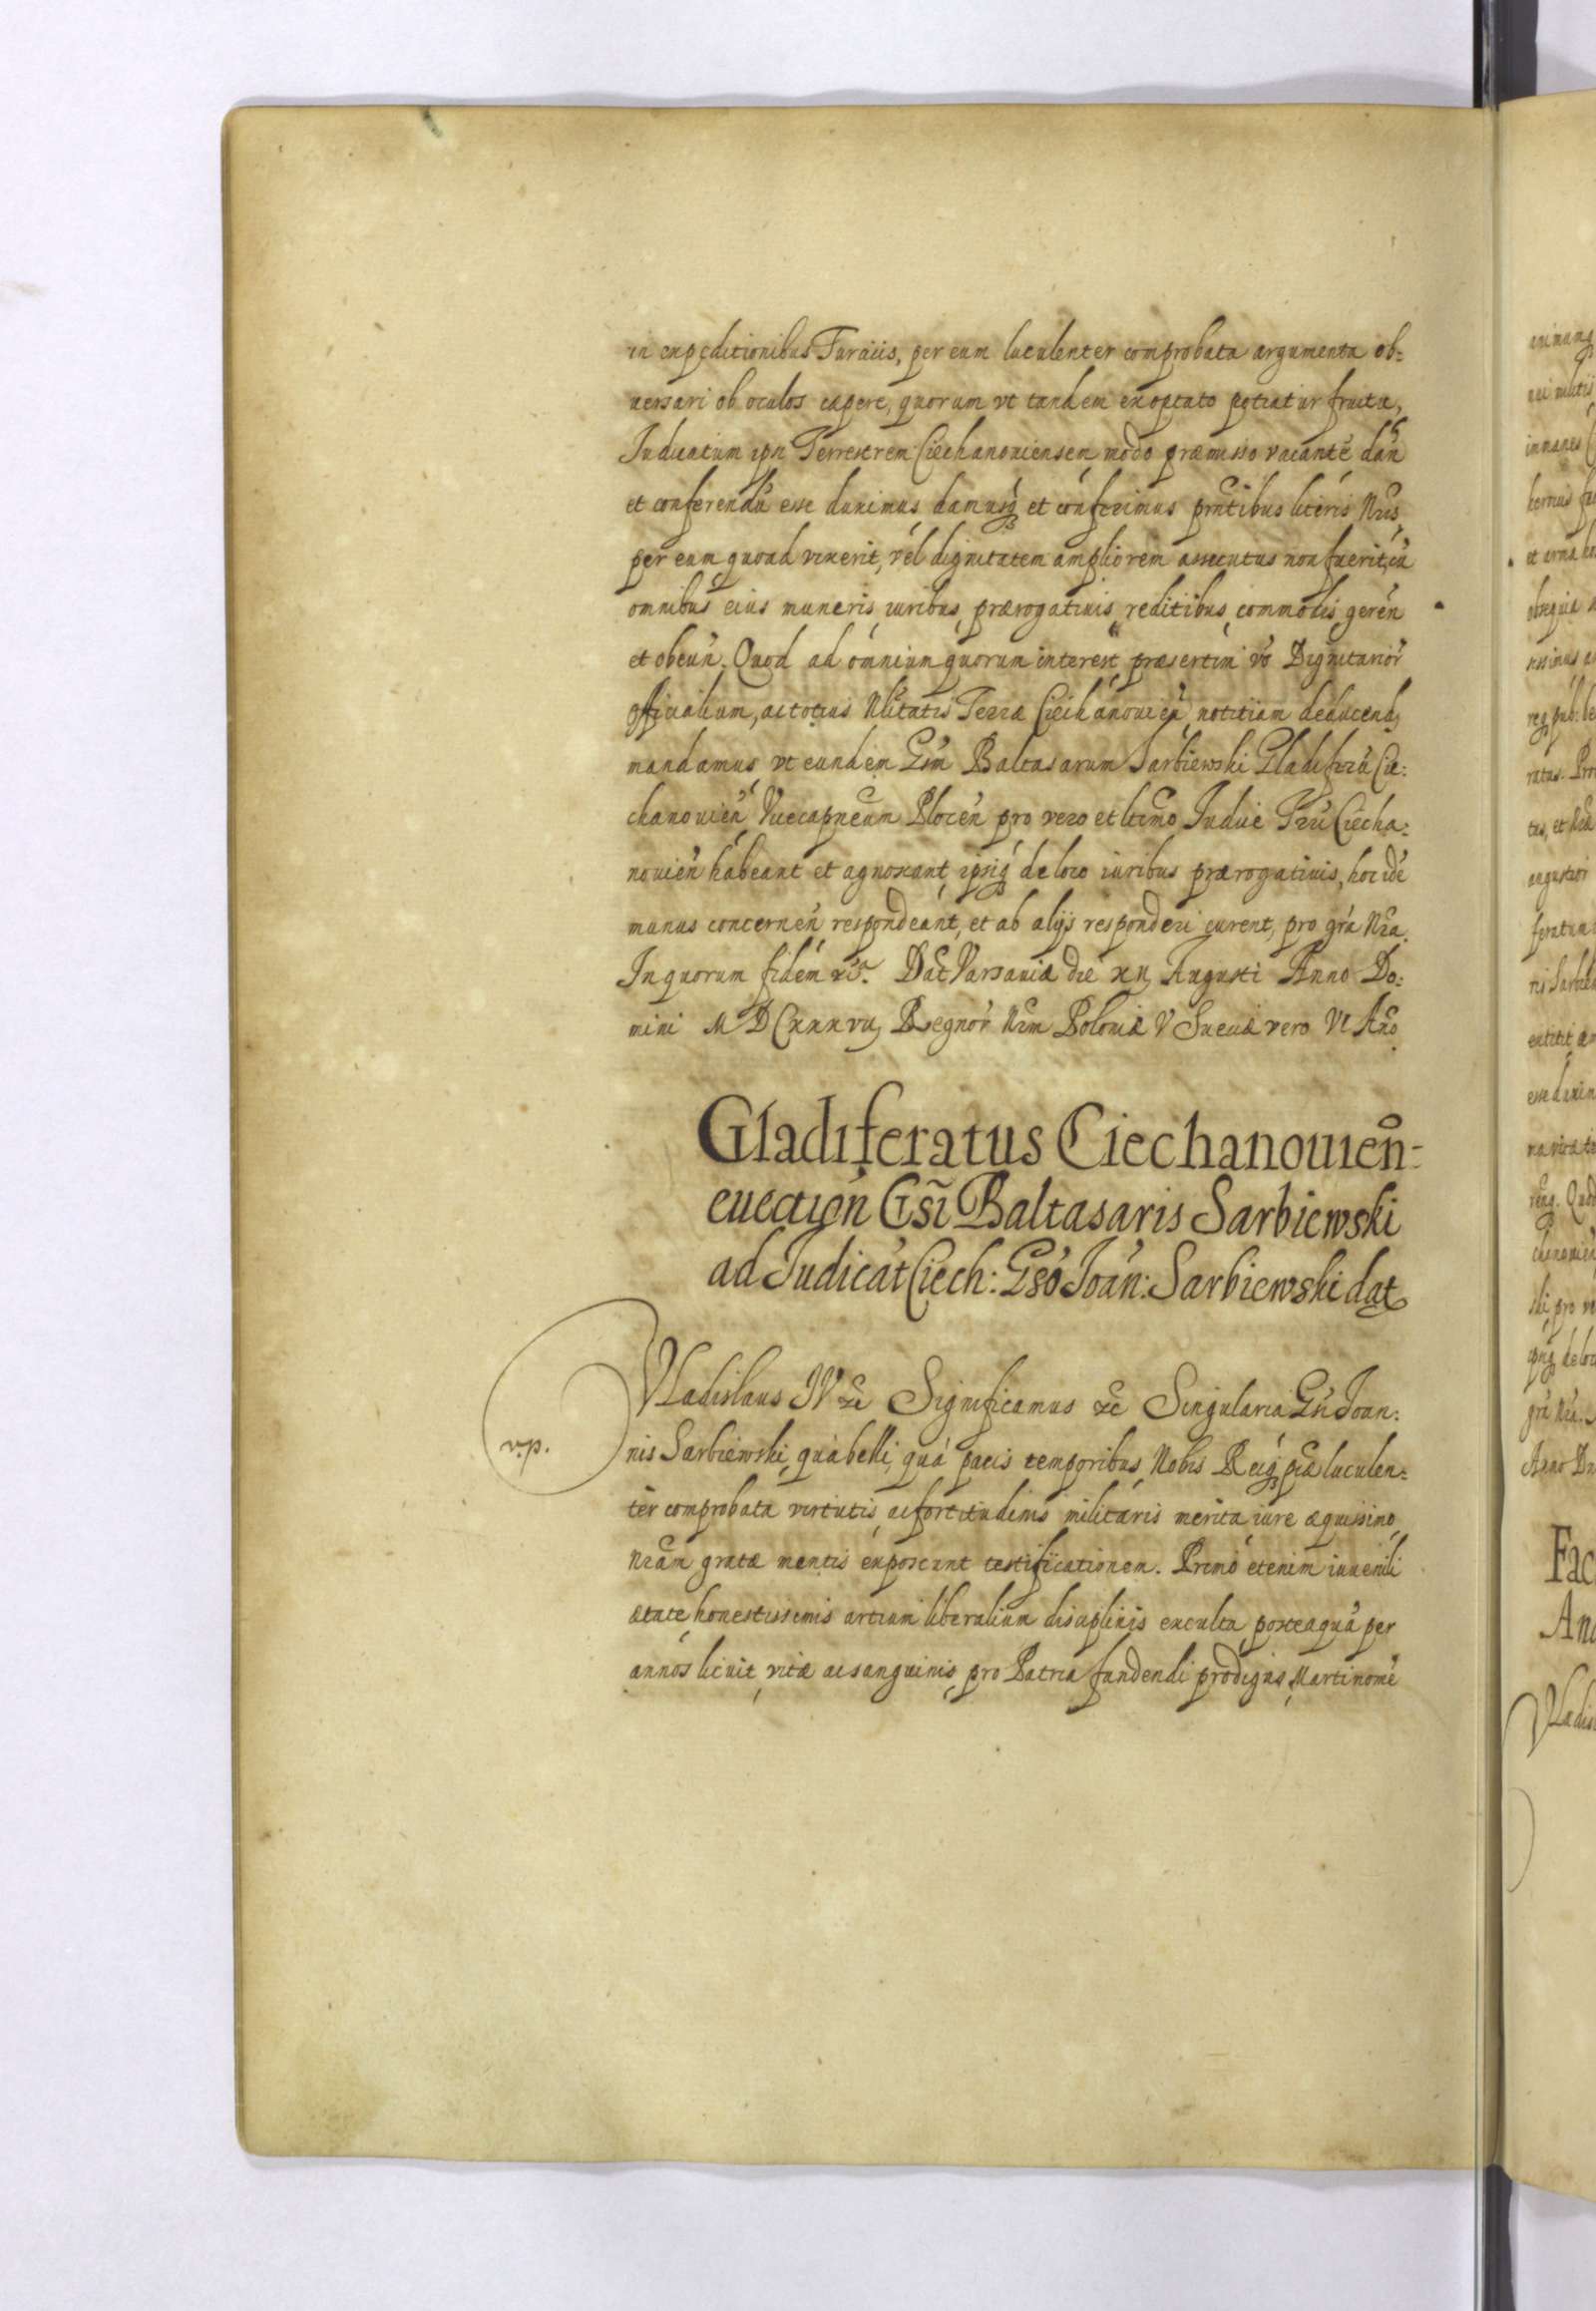 in expeditionibus Turciis, per eum luculenter comprobata argumenta ob=
uersari ob oculos cepere, quorum vt tandem exoptato potiatur fructu,
Judicatum ipsi Terrestrem Ciechanouiensem modo præmisso vacantē dan̄
et conferendū esse duximus, damusq₃ et conferimus prn̄tibus literis Nr̄is,
per eum quoad vixerit, vel dignitatem ampliorem assecutus non fuerit, cū
omnibus eius muneris, iuribus, prærogatiuis, reditibus, commodis, geren̄
et obeun̄. Quod ad omnium quorum interest, præsertim vō Dignitarior̄
Officialium, ac totius Nlitatis Terræ Ciechanouien̄, notitiam deducend₃
mandamus, vt eundem Gsm̄ Baltasarum Sarbiewski Gladiferū Cie:
chanouien̄ Vicecapneum Plocen̄ pro vero et ltīmo Judice Trī Ciecha:
nouien̄ habeant et agnoscant, ipsiq₃ de loco iuribus prærogatiuis, hoc idē
munus concernen̄ respondeant, et ab alijs responderi curent, pro gr̄a Nr̄a.
In quorum fidem &c. Dat Varsauiæ die XII Augusti Anno Do:
mini M D C XXXVII Regnor̄ Nrm̄ Poloniæ V Sueciæ vero VI Ano
Gladiferatus Ciechanouien̄
euection̄ Gs̃i Baltasaris Sarbiewski
ad Judicat Ciech: Gsō Joan̄: Sarbiewski dat
Vladislaus IV &c Significamus &c Singularia Gn̄i Joan:
nis Sarbiewski, quà belli, quà pacis temporibus, Nobis Reiq₃ pcæ luculen=
ter comprobata virtutis, ac fortitudinis militaris merita, iure æquissimo,
Nr̄am gratæ mentis exposcunt testificationem. Primò etenim iuuenili
ætate, honestissimis artium liberalium disciplinis exculta, posteaquā per
annos licuit, vitæ ac sanguinis, pro Patria fundendi prodigus, Marti nomē